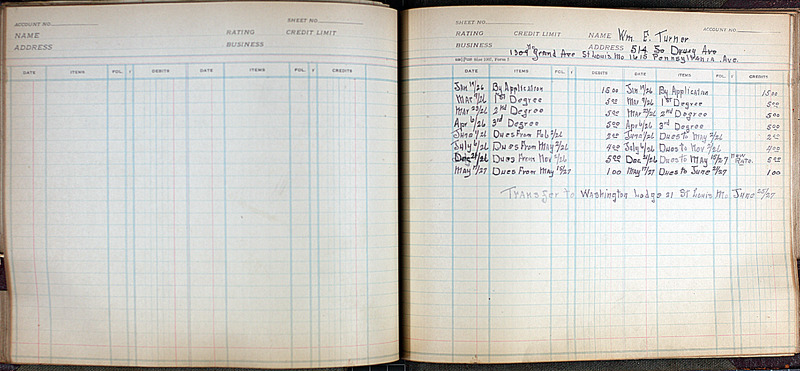 ACCOUNT NO. SHEET NO.
NAME RATING CREDIT LIMIT
ADDRESS BUSINESS
DATE ITEMS FOL. √ DEBITS DATE ITEMS FOL. √ CREDITS
SHEET NO. ACCOUNT NO.
RATING CREDIT LIMIT NAME Wm E. Turner
BUSINESS ADDRESS 514 So Drury Ave
1309 Grand Ave St Louis Mo 1615 Pennsylvania Ave.
DATE ITEMS FOL. √ DEBITS DATE ITEMS FOL. √ CREDITS
Jan 19/26 By Application 15 00 Jan 19/26 By Application 15 00
Mar 9/26 1st Degree 5 00 Mar 9/26 1st Degree 5 00
Mar 23/26 2nd Degree 5 00 Mar 23/26 2nd Degree 5 00
Apr 6/26 3rd Degree 5 00 Apr 6/26 3rd Degree 5 00
June 1/26 Dues From Feb 2/26 2 00 June 1/26 Dues to May 2/26 2 00
July 6/26 Dues From May 2/26 4 00 July 6/26 Dues to Nov 2/26 4 00
Dec 21/26 Dues From Nov 2/26 5 00 Dec 21/26 Dues to May 15/27 New Rate. 5 00
May 17/27 Dues From May 15/27 1 00 May 17/27 Dues to June 2/27 1 00
Transfer to Washington Lodge 21 St Louis Mo June 25/27